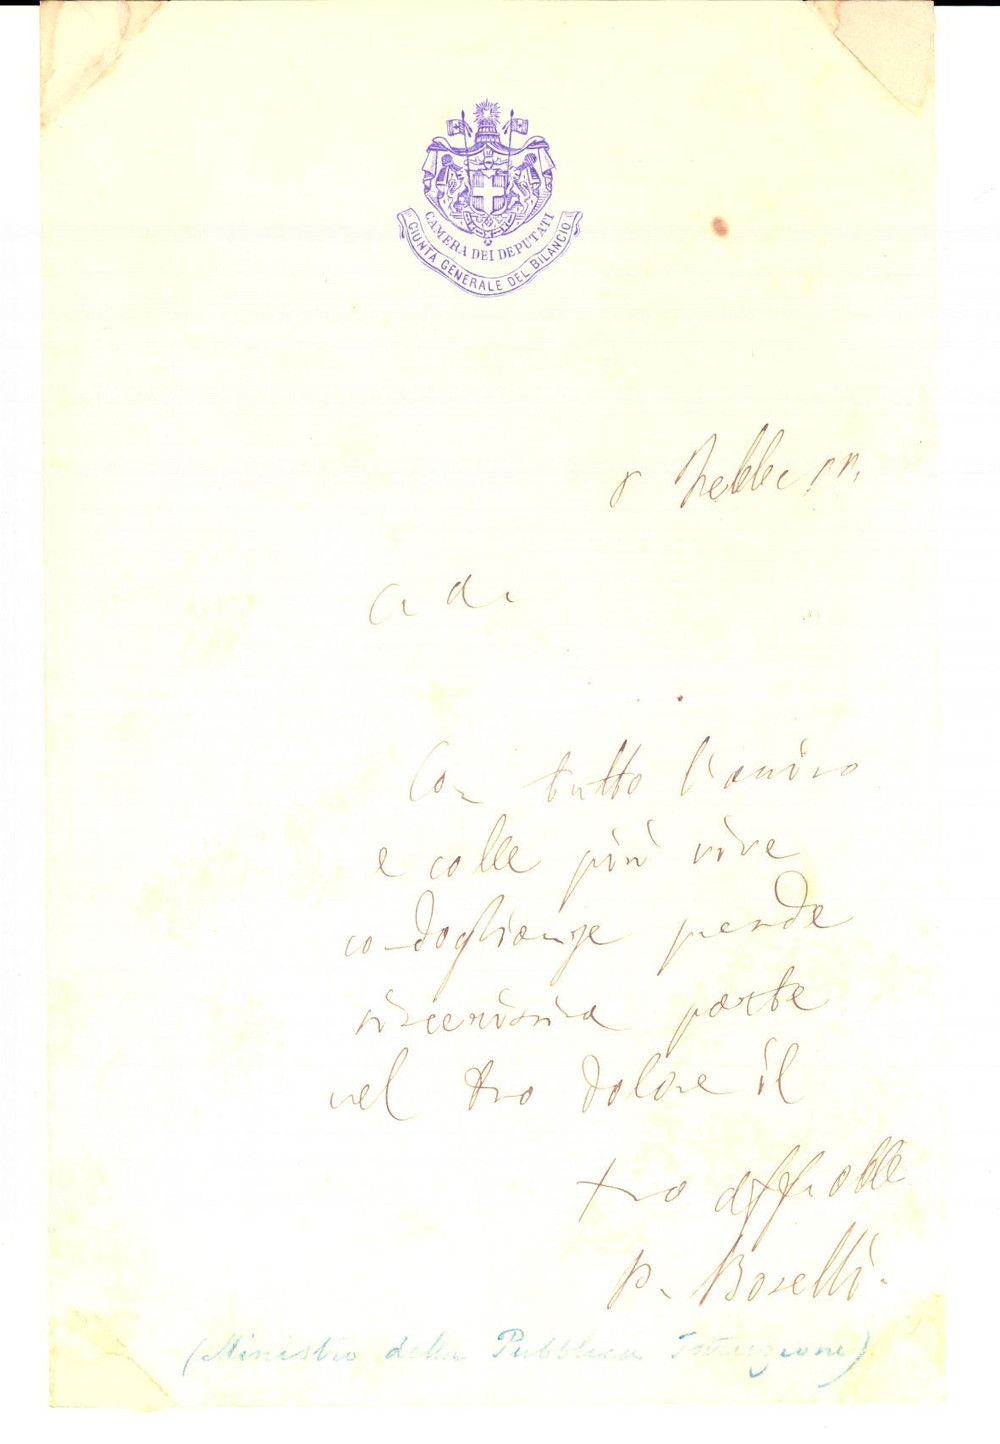 CAMERA DEI DEPUTATI
GIUNTA GENERALE DEL BILANCIO
Con tutto l'animo
e colle più vive
condoglianze prende
sincerissima parte
nel tuo dolore il
tuo
P. Boselli.
(Ministro della Pubblica Istruzione)